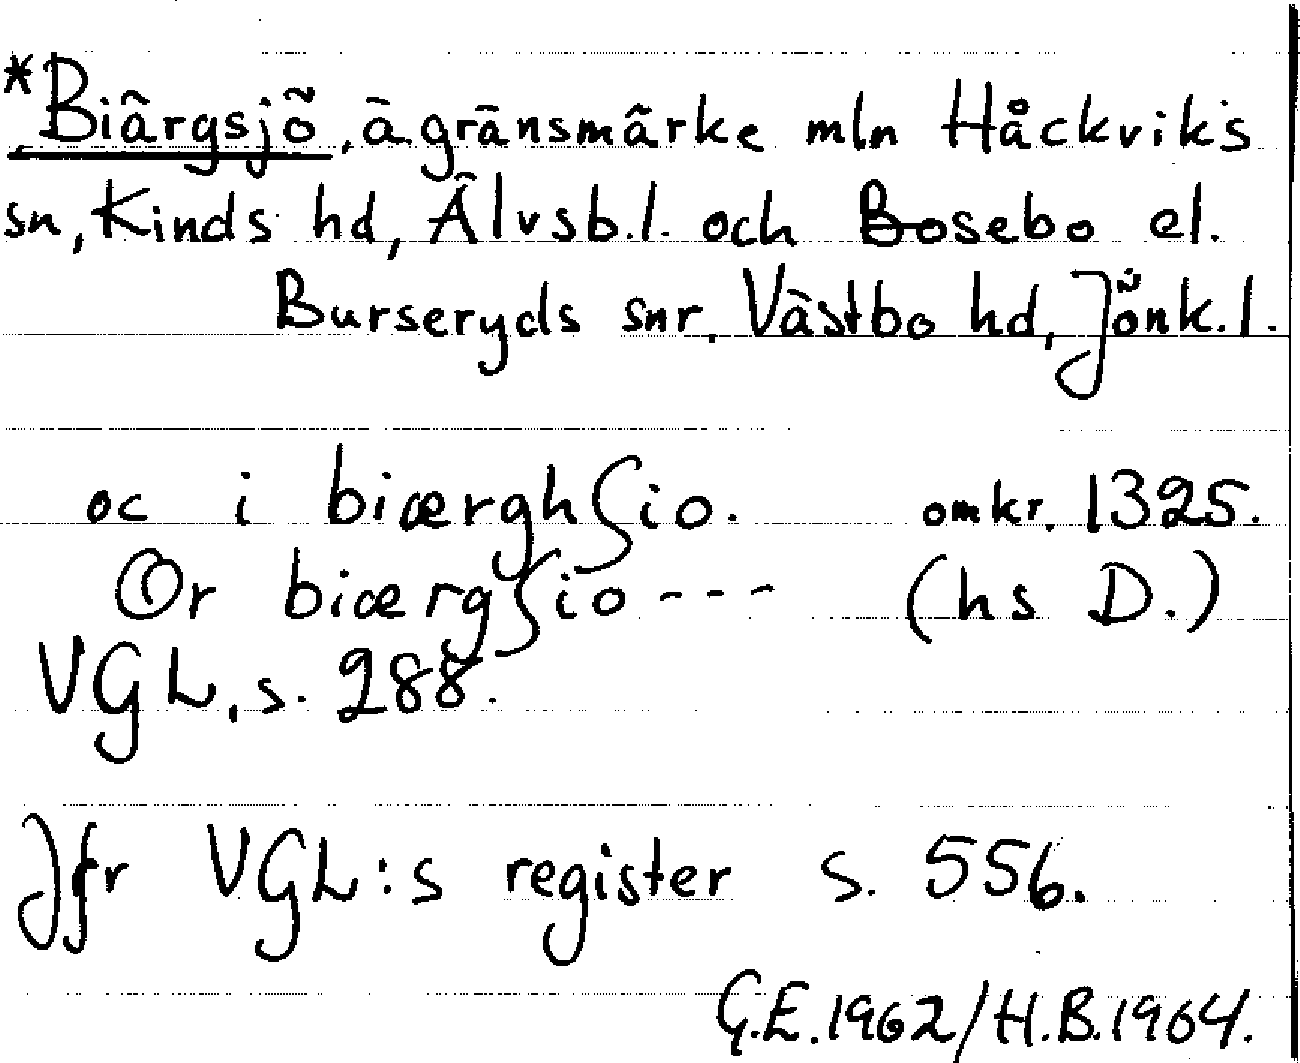 *Biärgsjö, ägränsmärke mln Håckviks
sn, Kinds hd, Älvsb.l. och Bosebo el.
Burseryds snr, Västbo hd, Jönk.l.
oc i biærghſio. omkr. 1325.
Or biærgſio --- (hs D.)
VGL, s. 288.
Jfr VGL:s register s. 556.
G.E.1962/H.B.1964.